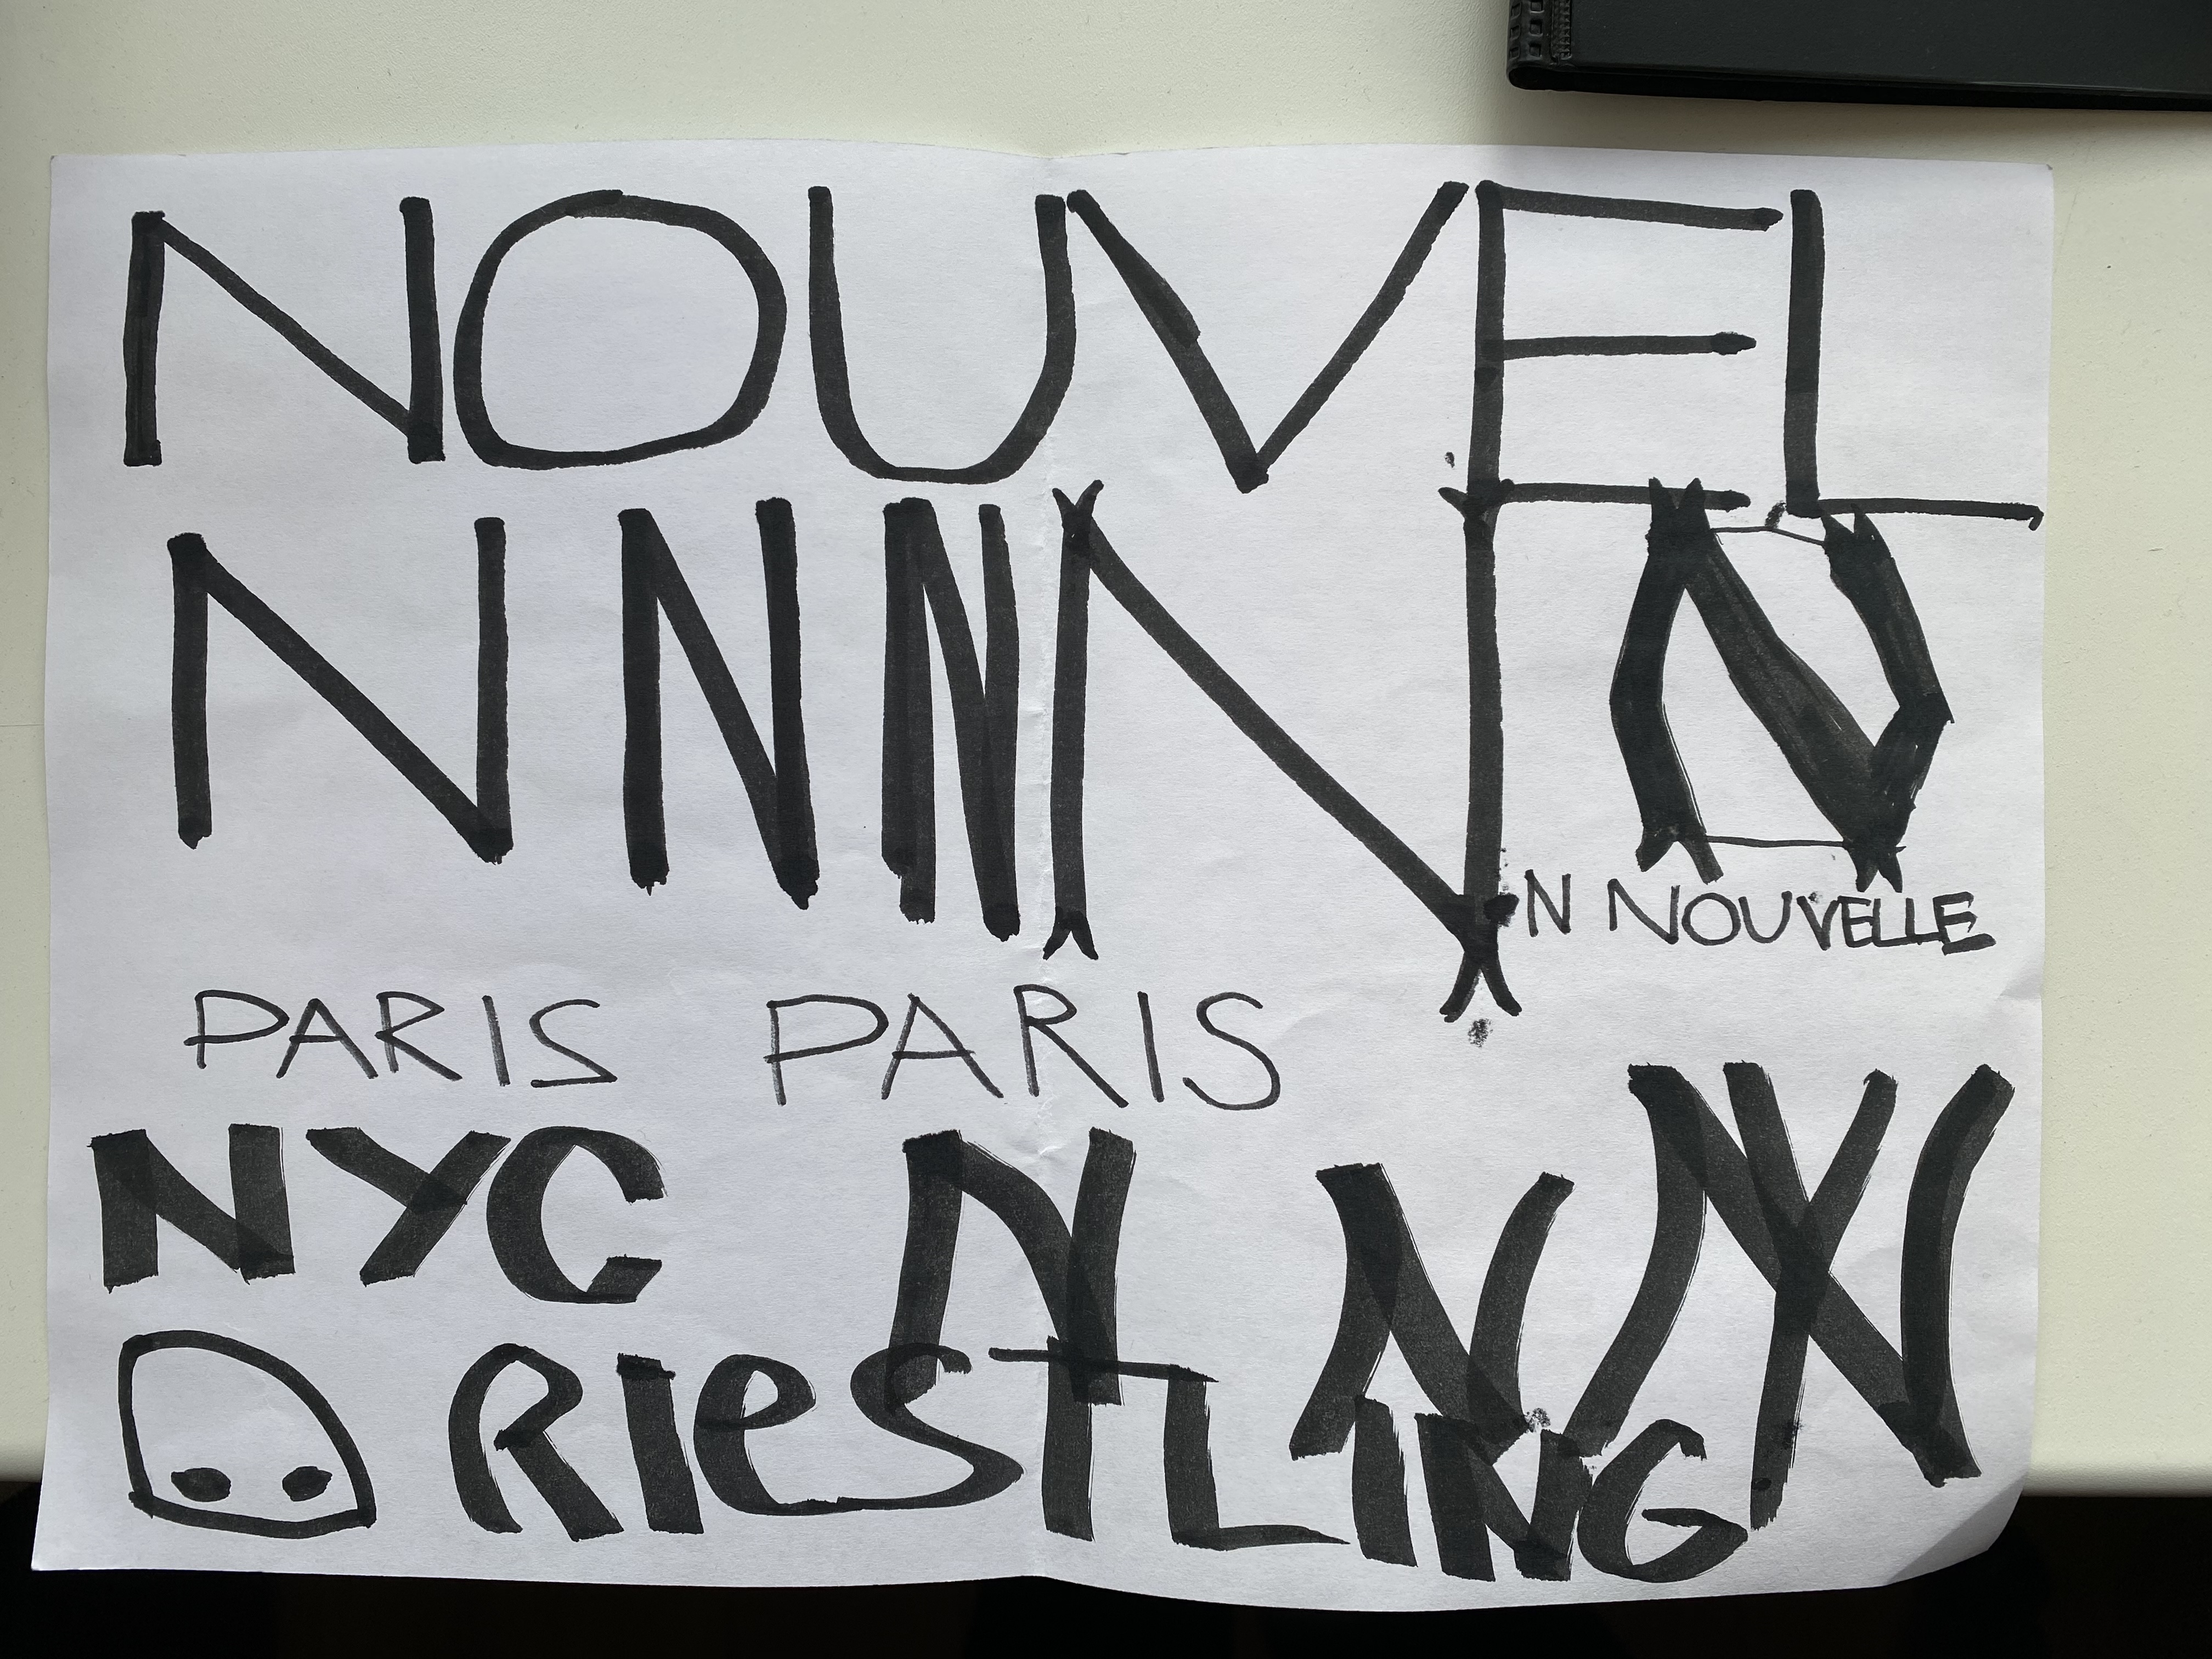 NOUVEL
N N N N N
N NOUVELLE
PARIS PARIS
NYC N N NY
RIESTLING